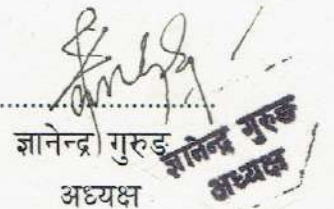 ज्ञानेन्द्र गुरुङ
अध्यक्ष
ज्ञानेन्द्र गुरुङ
अध्यक्ष